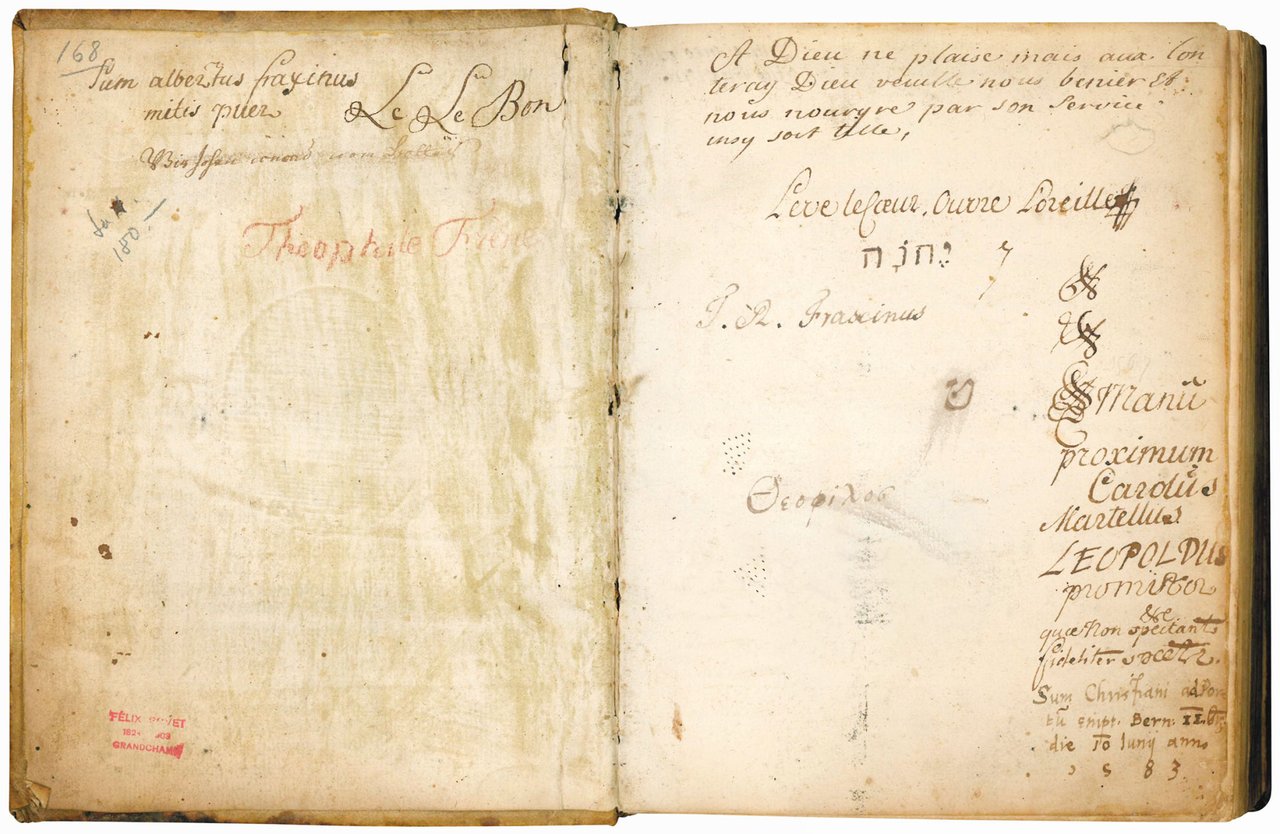 168
Sum albertus fraxinus
mitis puer
Le Le Bon
Theophile Frene
FÉLIX BOVET
GRANDCHAMP
A Dieu ne plaise mais aux
teray Dieu veuille nous benier Et
nous nourgre par son Service
soit
Leve le Cœur, Ouvre Loreille
יהוה
J. R. Fraxinus
Θεοφιλος
Manū
proximum
Carolus
Martellus
LEOPOLDUS
promistor
&c
quæ Non spectant
fideliter
Sum Christiani ad Por
tū empt. Bern. II
die 10 Iunij anno
1583